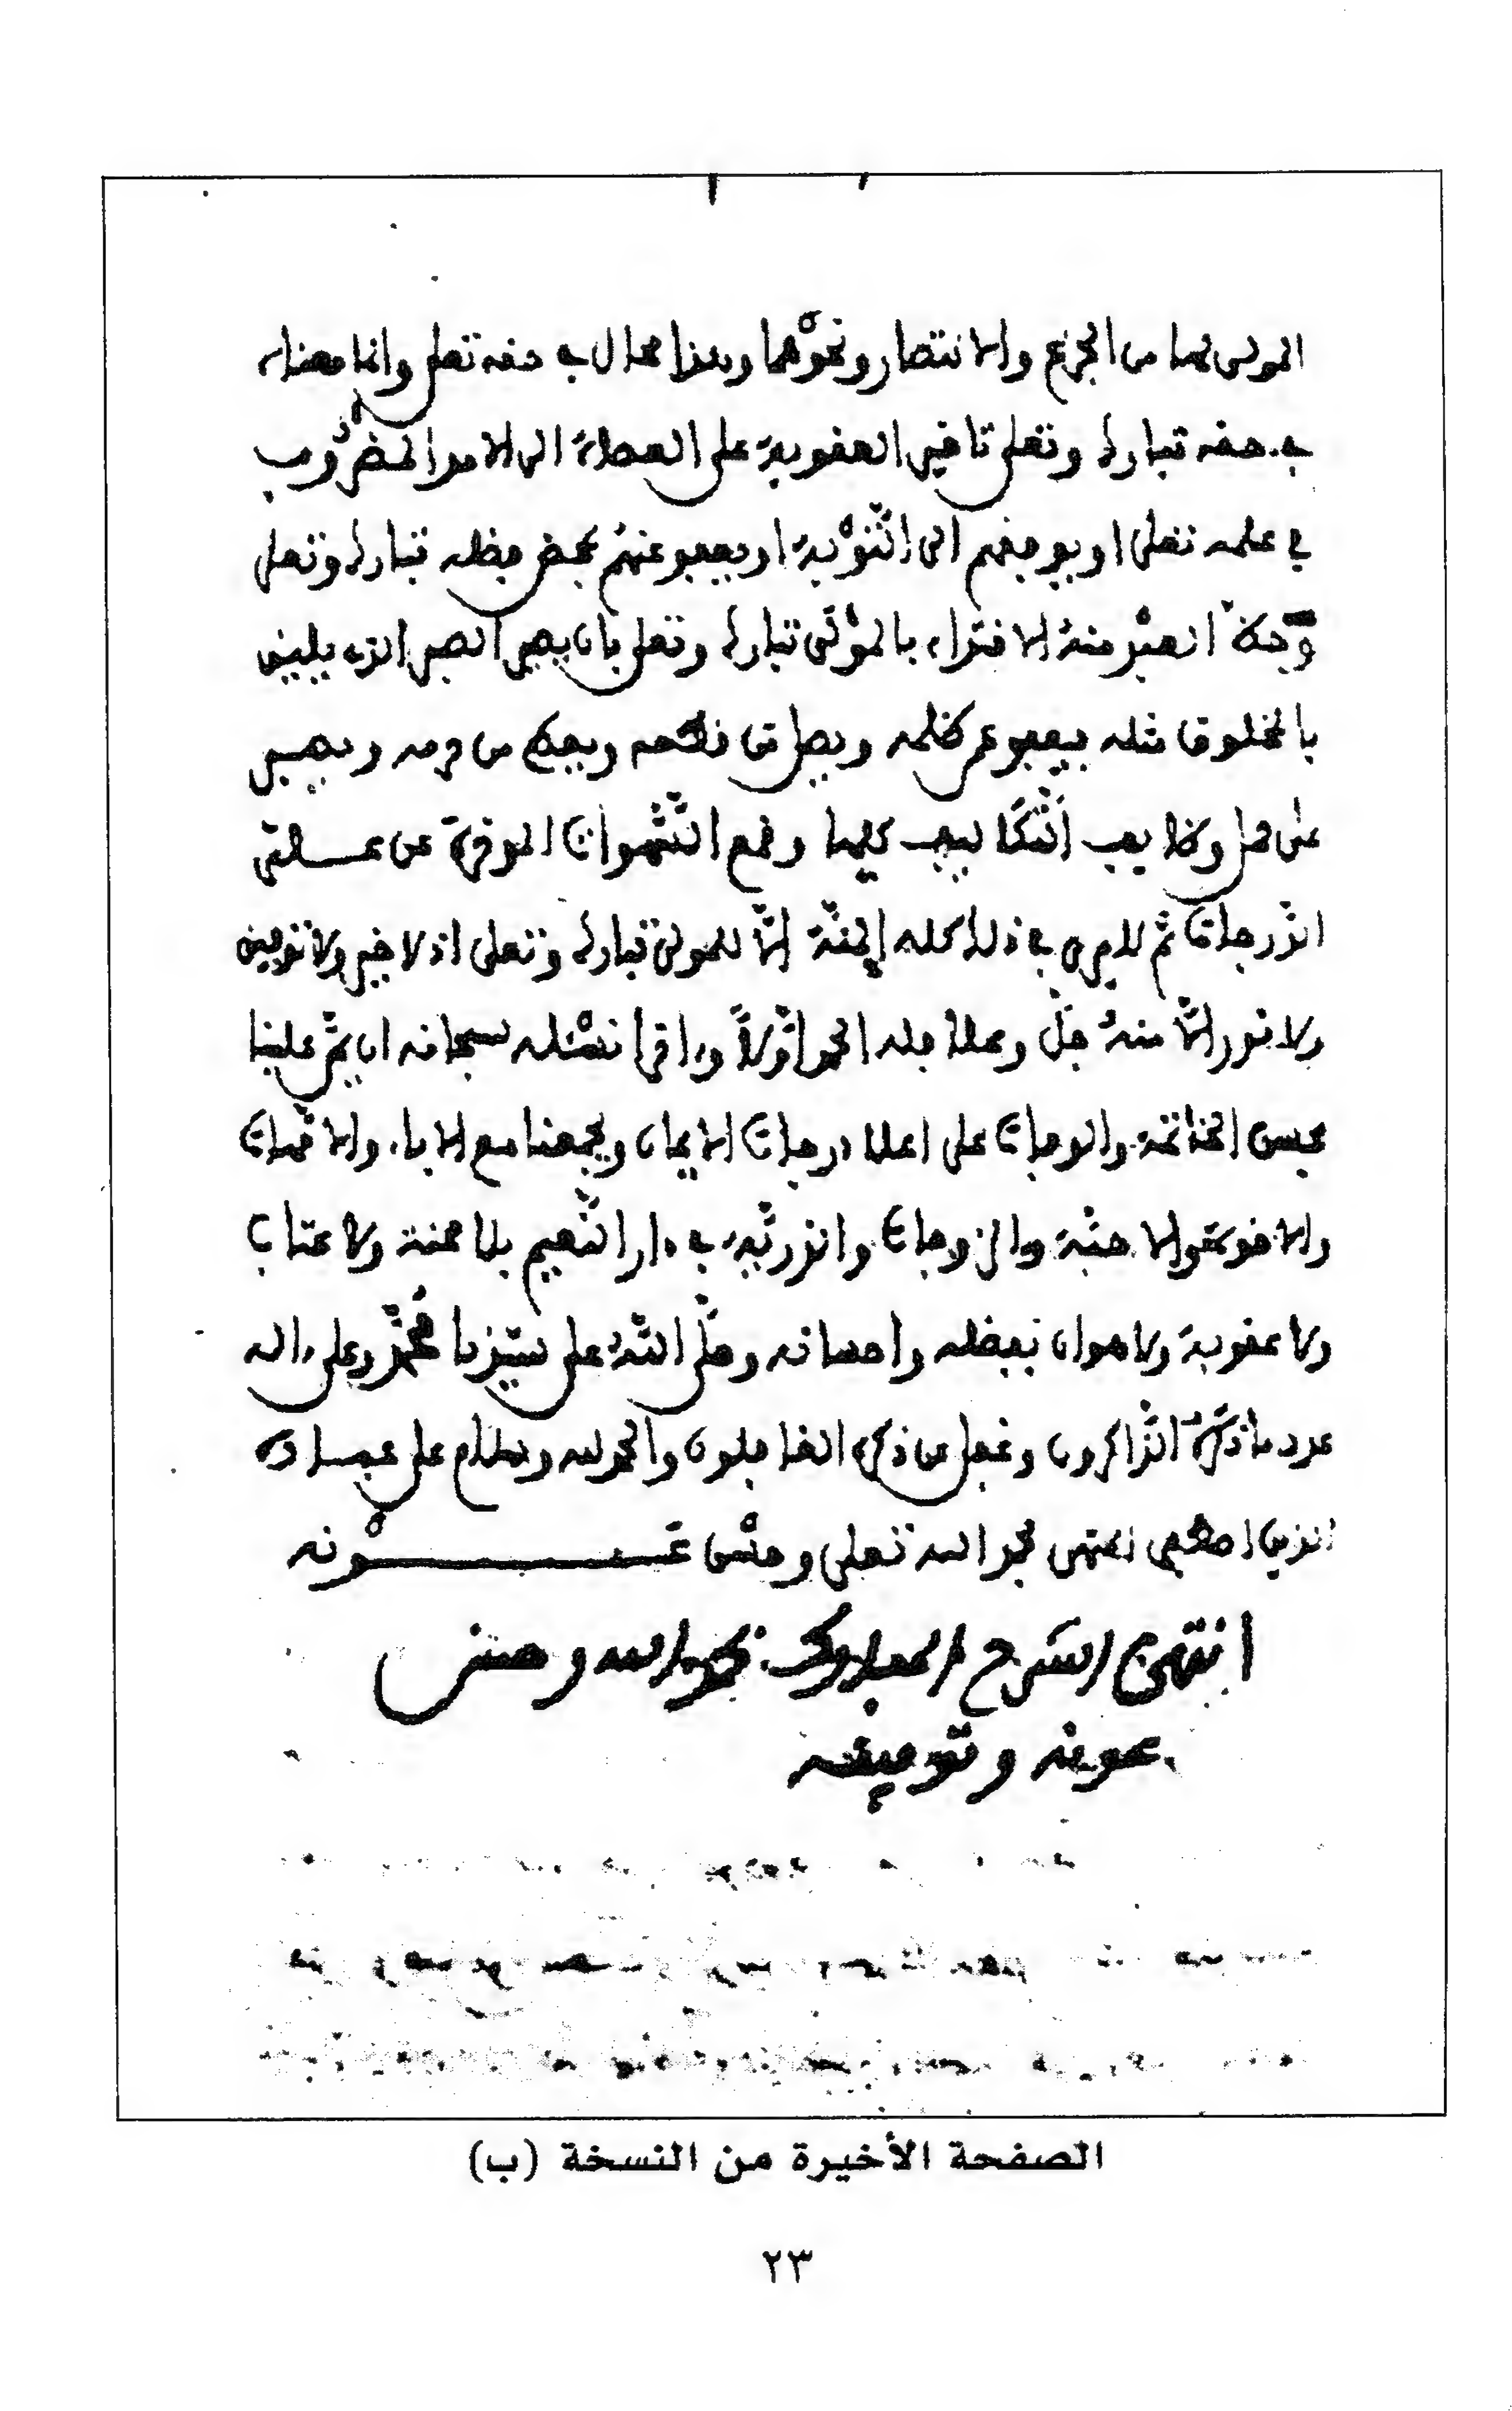 المولى لهما من الجزع والانتصار ونحوهما وهذا محال في حقه تعلى وانما معناه
في حقه تبارك وتعلى تاخير العقوبة على العصاة الى الامد المضروب
في علمه تعلى او يوفقهم الى التوبة او يعفو عنهم بمحض فضله تبارك وتعلى
وحظ العبد منه الاقتداء بالمولى تبارك وتعلى بان يصبر الصبر الذي يليق
بالمخلوق مثله فيعفو عمن ظلمه ويصل من قطعه ويعطي من حرمه ويصبر
على كل يجب وقمع الشهوات الموفرة عن
الدرجات ثم لا يرى في ذلك كله المنة الا للمولى تبارك وتعلى اذ لا خير ولا توفيق
ولا نور الا منه جل وعلا فله الحمد اولا واخرا نسئله سبحانه ان يمن علينا
بحسن الخاتمة والوفات على اعلا درجات الايمان ويجمعنا مع الاباء والامهات
والاخوة والاحبة والازوجات والذرية في دار النعيم بلا محنة ولا عتاب
ولا عقوبة ولا هوان بفضله واحسانه وصلى الله على سيدنا محمد وعلى ءاله
عدد ما ذكره الذاكرون وغفل عن ذكره الغافلون والحمد لله وسلام على عباده
الذين اصطفى انتهى بحمد الله تعلى وحسن عونه
انتهى الشرح المبارك بحمد الله وحسن
عونه وتوفيقه
الصفحة الأخيرة من النسخة (ب)
٢٣